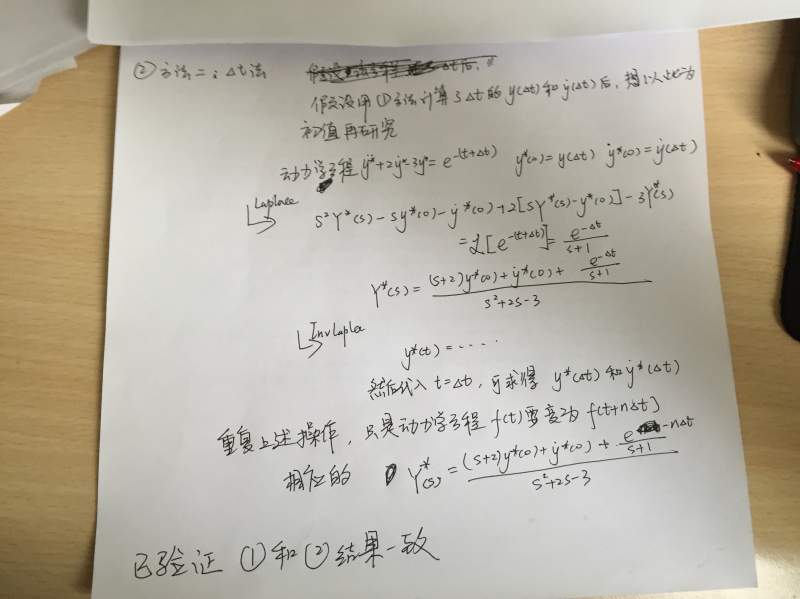 ② 方法二：Δt法
假设用①方法计算了Δt的y(Δt)和ẏ(Δt)后，想以此为
初值再研究
动力学方程 ÿ*+2ẏ*-3y*= e^{-(t+Δt)} y*(0)=y(Δt) ẏ*(0)=ẏ(Δt)
Laplace
s²Y*(s)-sy*(0)-ẏ*(0)+2[sY*(s)-y*(0)]-3Y*(s)
=ℒ[e^{-(t+Δt)}]=e^{-Δt}/(s+1)
Y*(s)=((s+2)y*(0)+ẏ*(0)+e^{-Δt}/(s+1))/(s²+2s-3)
InvLaplace
y*(t)=·····
然后代入t=Δt，可求得 y*(Δt)和ẏ*(Δt)
重复上述操作，只是动力学方程f(t)要变为f(t+nΔt)
相应的 Y*(s)=((s+2)y*(0)+ẏ*(0)+e^{-nΔt}/(s+1))/(s²+2s-3)
已验证①和②结果一致